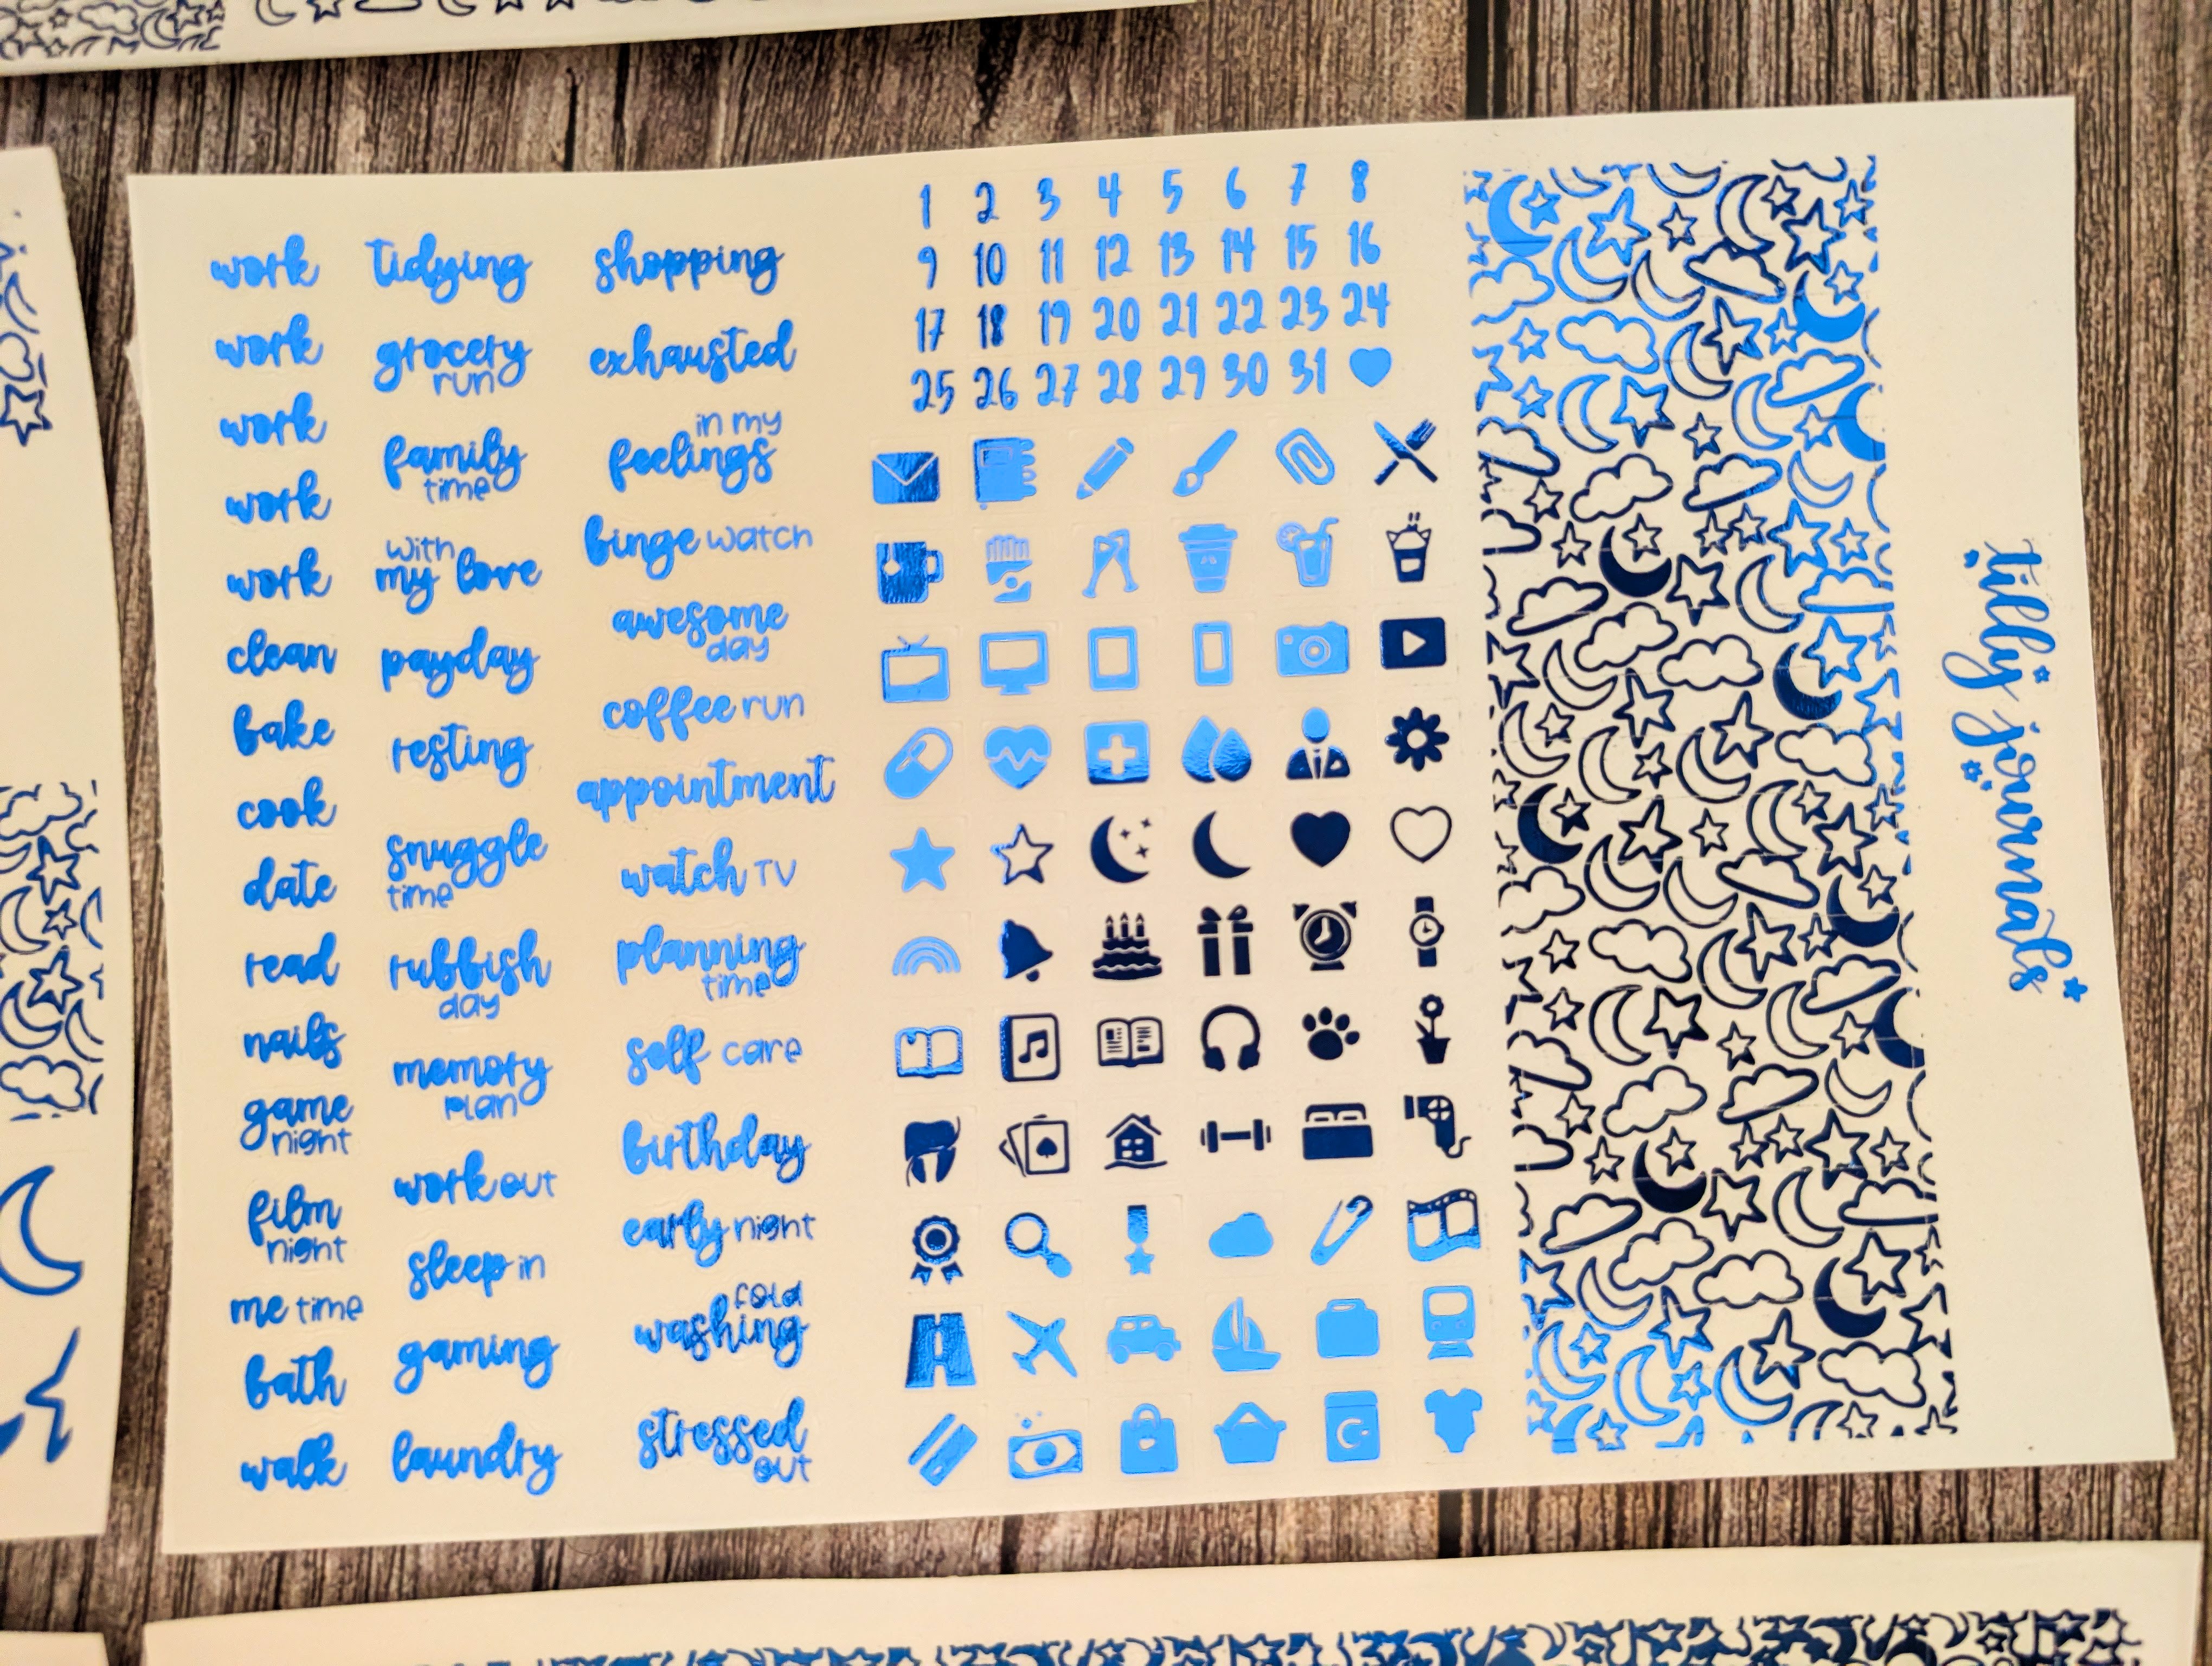 work
work
work
work
work
clean
bake
cook
date
read
nails
game
night
film
night
me time
bath
walk
tidying
grocery
run
family
time
with
my love
payday
resting
snuggle
time
rubbish
day
memory
plan
work out
sleep in
gaming
laundry
shopping
exhausted
in my
feelings
binge watch
awesome
day
coffee run
appointment
watch TV
planning
time
self care
birthday
early night
fold
washing
stressed
out
1 2 3 4 5 6 7 8
9 10 11 12 13 14 15 16
17 18 19 20 21 22 23 24
25 26 27 28 29 30 31
tilly journals